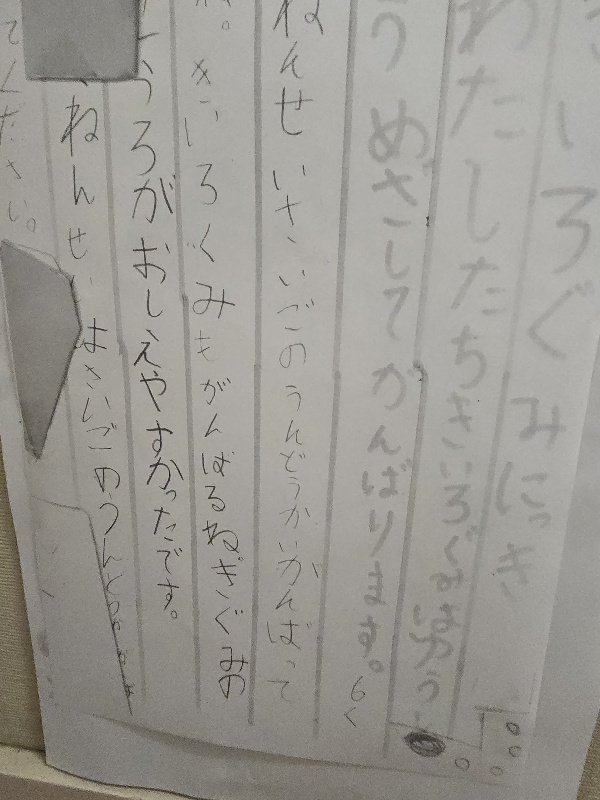 いろぐみにっき
わたしたちきいろぐみは
うめざしてがんばります。6く
ねんせいさいごのうんどうかいがんばって
ね。きいろぐみもがんばるねきぐみの
うろがおしえやすかったです。
ねんせいはさいごのうんど
てください。